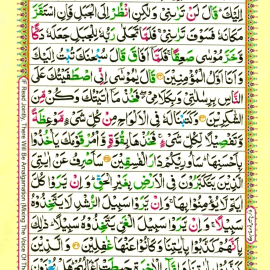 اِلَيْكَ ؕ قَالَ لَنْ تَرٰىنِيْ وَلٰكِنِ انْظُرْ اِلَى الْجَبَلِ فَاِنِ اسْتَقَرَّ
مَكَانَهٗ فَسَوْفَ تَرٰىنِيْ ۚ فَلَمَّا تَجَلّٰى رَبُّهٗ لِلْجَبَلِ جَعَلَهٗ دَكًّا
وَّخَرَّ مُوْسٰى صَعِقًا ۚ فَلَمَّاۤ اَفَاقَ قَالَ سُبْحٰنَكَ تُبْتُ اِلَيْكَ
وَاَنَا اَوَّلُ الْمُؤْمِنِيْنَ قَالَ يٰمُوْسٰۤى اِنِّى اصْطَفَيْتُكَ عَلَى
النَّاسِ بِرِسٰلٰتِيْ وَبِكَلَامِيْ ۖ فَخُذْ مَاۤ اٰتَيْتُكَ وَكُنْ مِّنَ
الشّٰكِرِيْنَ وَكَتَبْنَا لَهٗ فِى الْاَلْوَاحِ مِنْ كُلِّ شَيْءٍ مَّوْعِظَةً
وَّتَفْصِيْلًا لِّكُلِّ شَيْءٍ ۚ فَخُذْهَا بِقُوَّةٍ وَّاْمُرْ قَوْمَكَ يَاْخُذُوْا
بِاَحْسَنِهَا ؕ سَاُورِيْكُمْ دَارَ الْفٰسِقِيْنَ سَاَصْرِفُ عَنْ اٰيٰتِيَ
الَّذِيْنَ يَتَكَبَّرُوْنَ فِى الْاَرْضِ بِغَيْرِ الْحَقِّ ؕ وَاِنْ يَّرَوْا كُلَّ
اٰيَةٍ لَّا يُؤْمِنُوْا بِهَا ۚ وَاِنْ يَّرَوْا سَبِيْلَ الرُّشْدِ لَا يَتَّخِذُوْهُ
سَبِيْلًا ۚ وَاِنْ يَّرَوْا سَبِيْلَ الْغَيِّ يَتَّخِذُوْهُ سَبِيْلًا ؕ ذٰلِكَ
بِاَنَّهُمْ كَذَّبُوْا بِاٰيٰتِنَا وَكَانُوْا عَنْهَا غٰفِلِيْنَ وَالَّذِيْنَ
F Read Jointly, There Will Be Amalgamation (Mixing The Voice Of Th